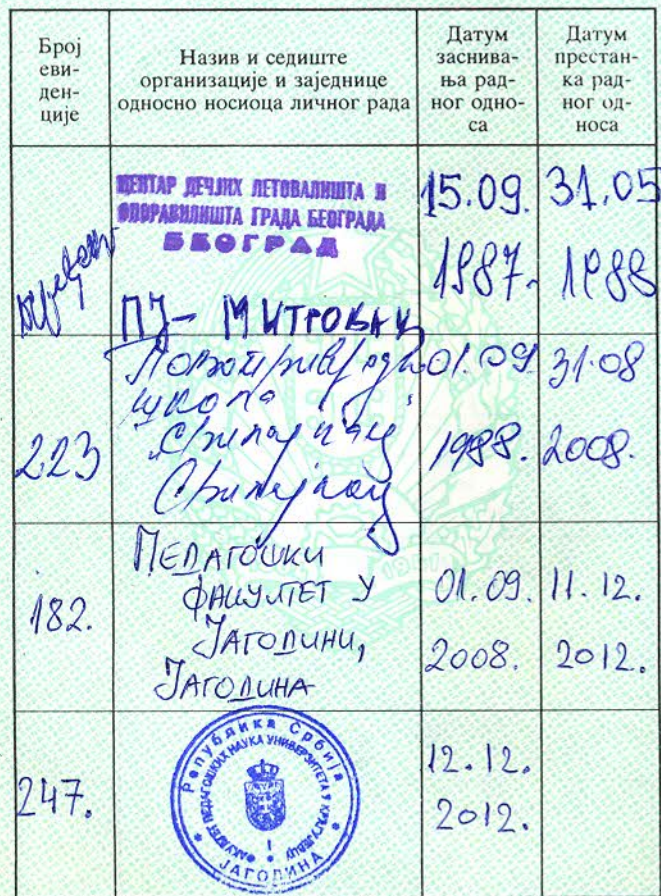 Број
еви-
ден-
ције
Назив и седиште
организације и заједнице
односно носиоца личног рада
Датум
заснива-
ња рад-
ног одно-
са
Датум
престан-
ка рад-
ног од-
носа
ЦЕНТАР ДЕЧЈИХ ЛЕТОВАЛИШТА И
ОПОРАВИЛИШТА ГРАДА БЕОГРАДА
БЕОГРАД
ПЈ- МИТРОВАЦ
15.09.
1987.
31.05
1988
223
Пољопривредна
школа
"Свилајнац"
Свилајнац
01.09
1988.
31.08
2008.
182.
ПЕДАГОШКИ
ФАКУЛТЕТ У
ЈАГОДИНИ,
ЈАГОДИНА
01.09.
2008.
11.12.
2012.
247.
Република Србија
ФАКУЛТЕТ ПЕДАГОШКИХ НАУКА УНИВЕРЗИТЕТА У КРАГУЈЕВЦУ
1
ЈАГОДИНА
12.12.
2012.